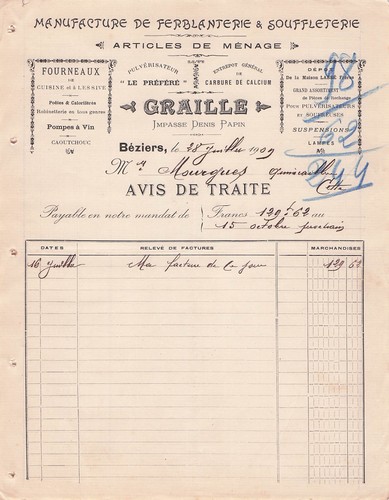 MANUFACTURE DE FERBLANTERIE & SOUFFLETERIE
ARTICLES DE MÉNAGE
FOURNEAUX
DE
CUISINE et à LESSIVE
Poêles & Calorifères
Robinetterie en tous genres
Pompes à Vin
CAOUTCHOUC
PULVÉRISATEUR
"LE PRÉFÉRÉ"
ENTREPÔT GÉNÉRAL
DE
CARBURE DE CALCIUM
GRAILLE
IMPASSE DENIS PAPIN
DÉPÔT
De la Maison
GRAND ASSORTIMENT
de Pièces de Rechange
Pour PULVÉRISATEURS
ET
SOUFREUSES
SUSPENSIONS
LAMPES
Béziers, le 28 Juillet 1909
M Mourgues
AVIS DE TRAITE
Payable en notre mandat de Francs 129f 62 au
15 octobre prochain
DATES RELEVÉ DE FACTURES MARCHANDISES
16 Juillet Ma facture de ce jour 129 62